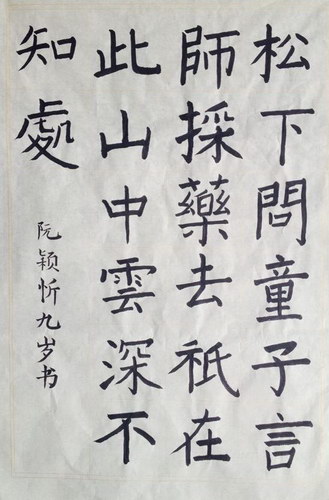 松下問童子言
師採藥去祇在
此山中雲深不
知處
阮颖忻九岁书